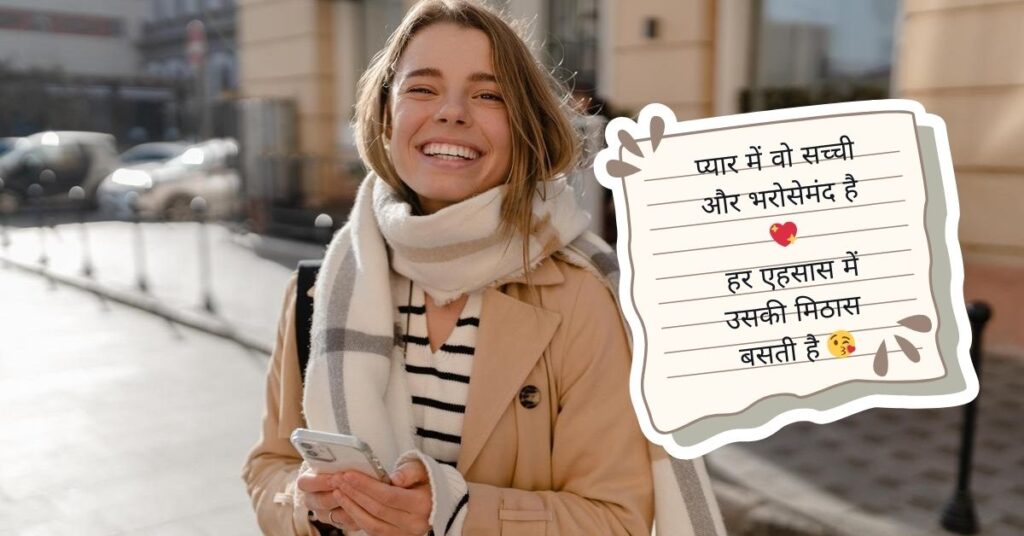 प्यार में वो सच्ची
और भरोसेमंद है
💖
हर एहसास में
उसकी मिठास
बसती है 😘